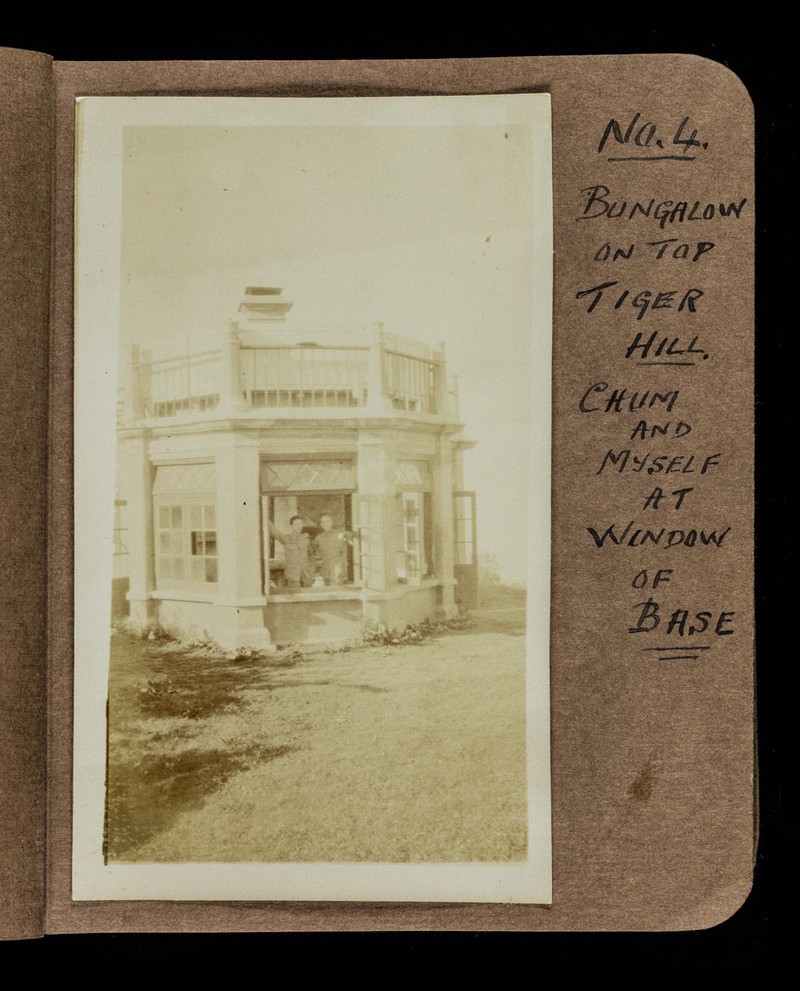 No. 4.
BUNGALOW
ON TOP
TIGER
HILL.
CHUM
AND
MYSELF
AT
WINDOW
OF
BASE